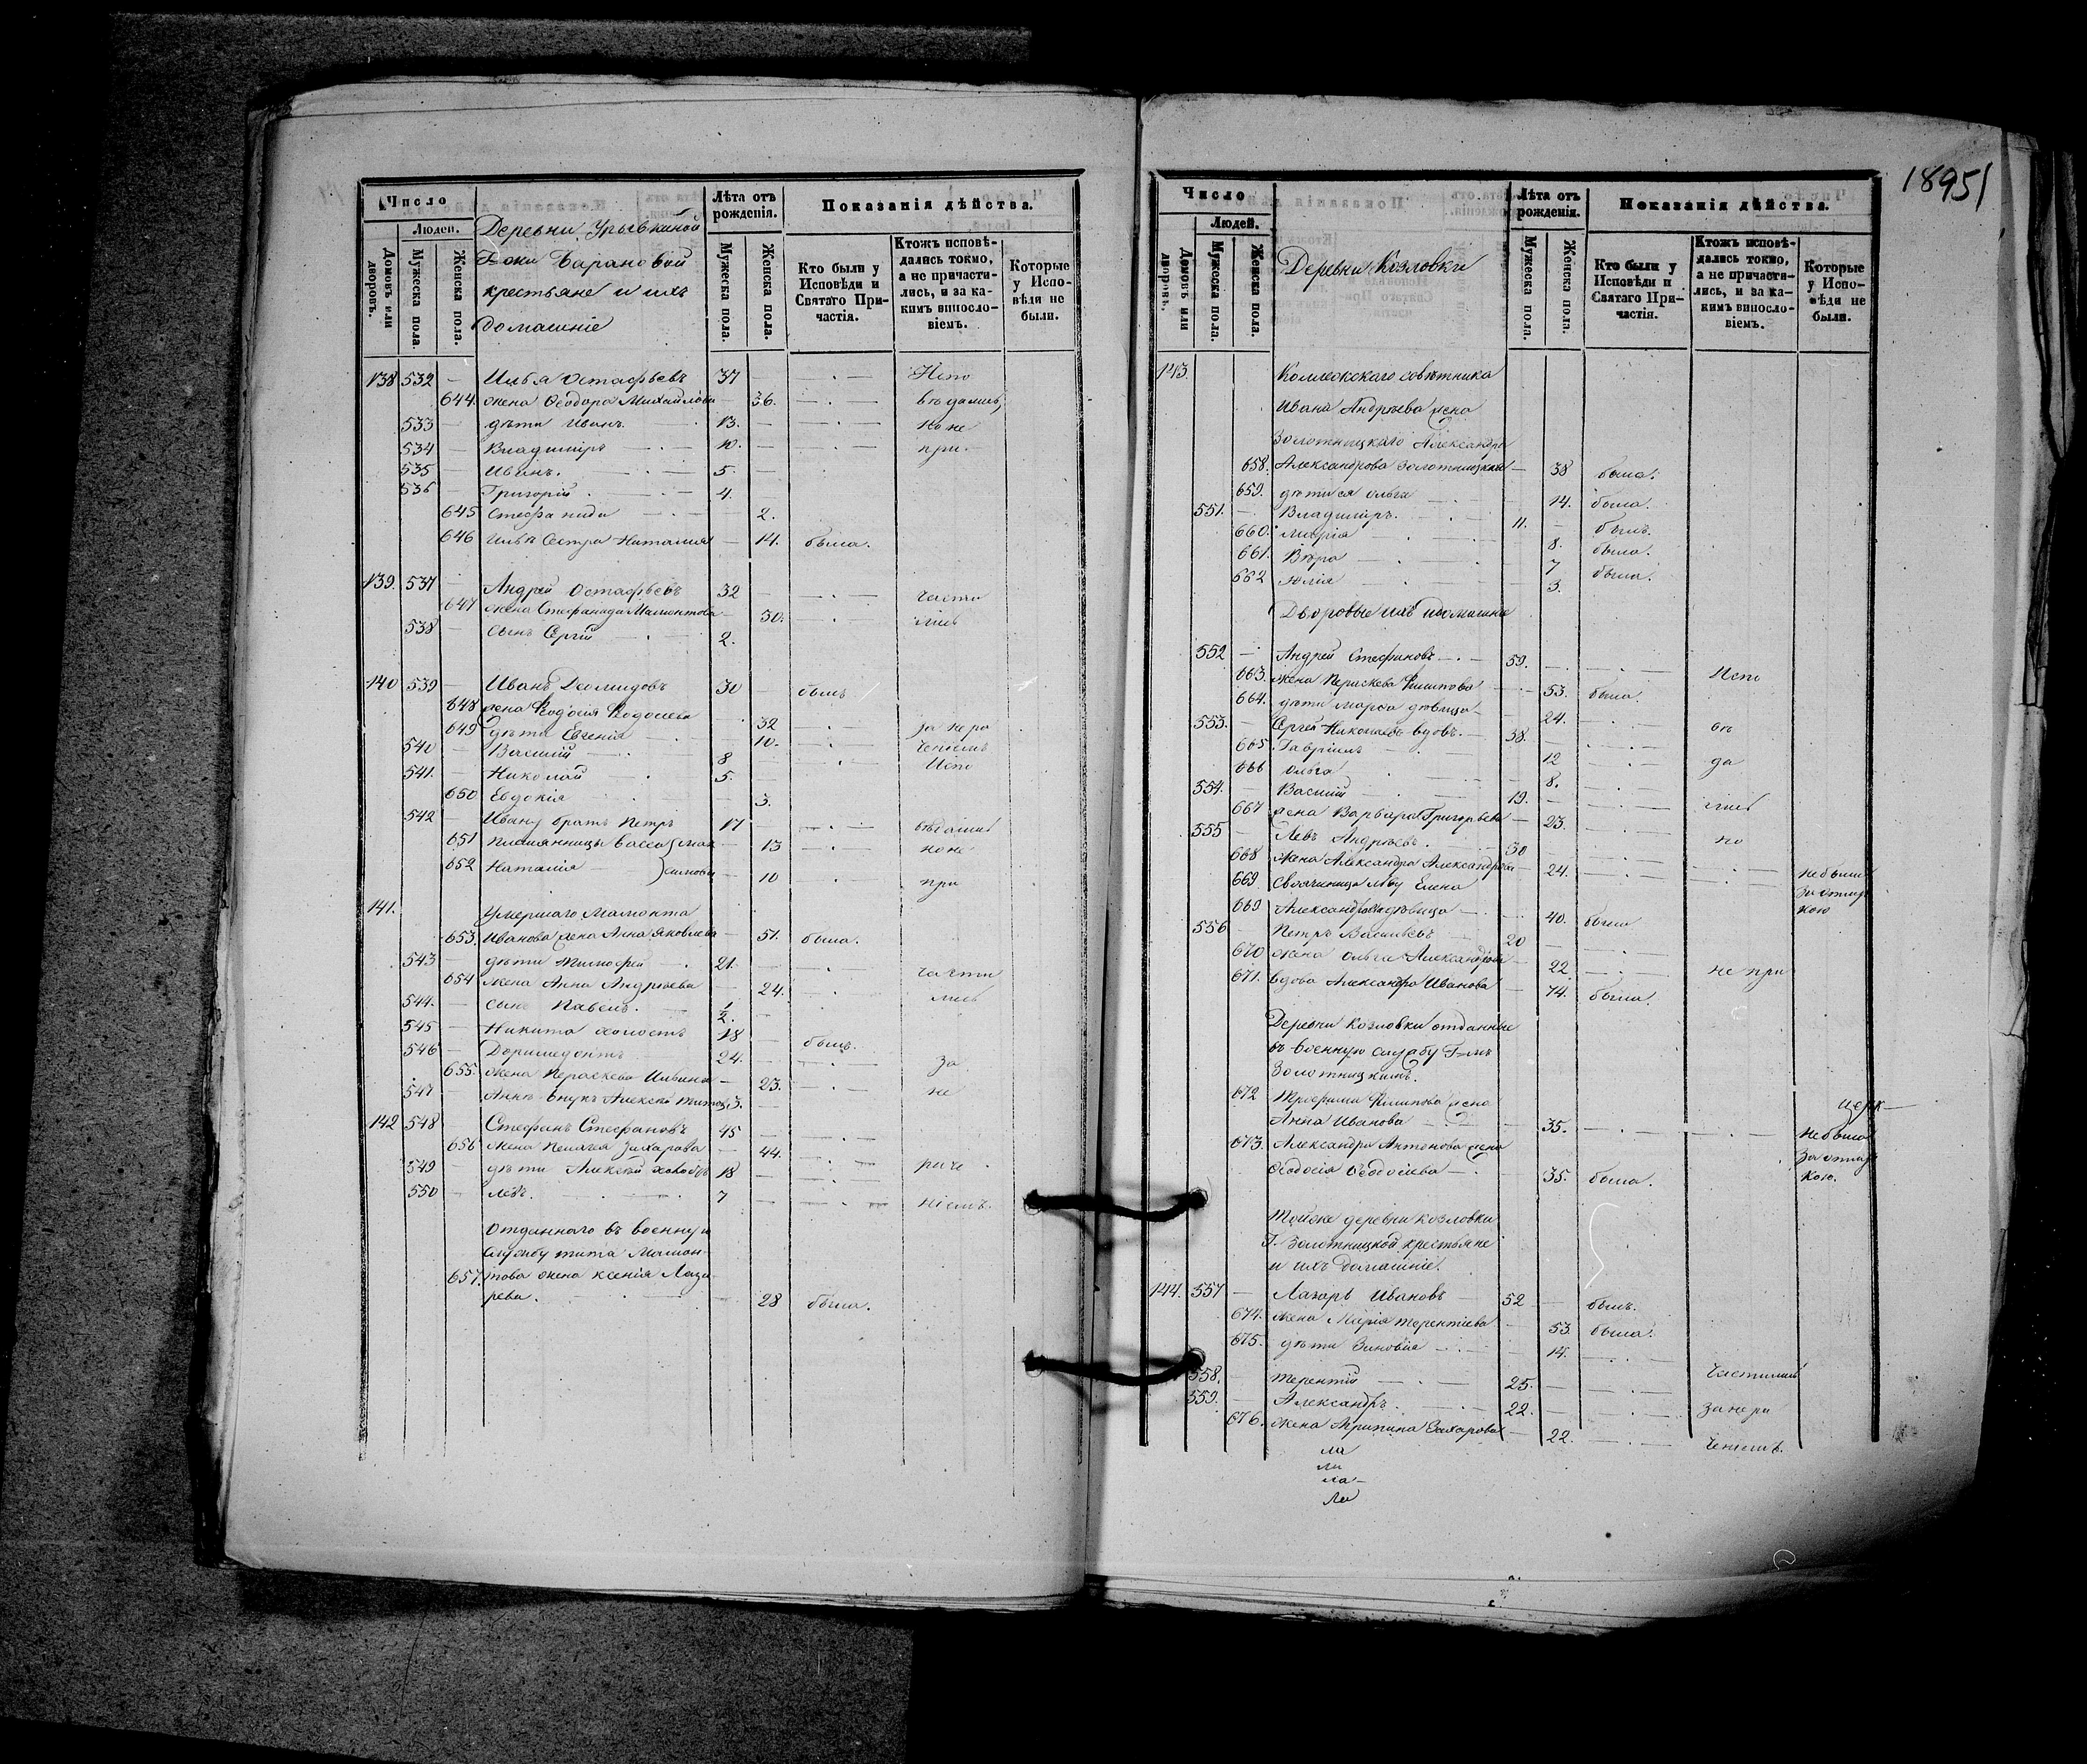 Число
Людей.
Домовъ или дворовъ.
Мужеска пола.
Женска пола.
Деревни Урывкиной
Г-жи Барановой
крестьяне и ихъ
домашніе
Лѣта отъ рожденія.
Мужеска пола.
Женска пола.
Показанія дѣйства.
Кто были у Исповѣди и Святаго Причастія.
Ктожъ исповѣдались токмо, а не причастились, и за какимъ винословіемъ.
Которые у Исповѣди не были.
138 532 — Илья Остафьевъ 37 — Испо
644. жена Ѳеодора Михайлова — 36. вѣдались,
533 — дѣти Иванъ 13. — но не
534 — Владиміръ 10. — при.
535 Иванъ. 5. —
536 — Григорій 4.
645 Стефанида — 2.
646 Ильи Сестра Наталия — 14. была.
139. 537 — Андрей Остафьевъ 32 — части
647 жена Стефанида Мамонтова — 30. лись
538 — сынъ Сергій 2.
140 539 — Иванъ Деомидовъ 30 — былъ
648 жена Ѳедосія Ѳедосиева 32 за нера
649 дѣти Евгенія 10. ченіемъ
540 — Василий 8 Испо
541. — Николай 5.
650 Евдокія 3.
542 — Ивану братъ Петръ 17 — вѣдались
651 племянницы Васса 13 но не
652 Наталія 10 при
141. Умершаго Мамонта
653. Иванова жена Анна Яковлева — 51. была.
543 — дѣти Тимофей 21. — части
654 жена Анна Андреева — 24. лись
544. — сынъ Павелъ. 1/2.
545 — Никита холостъ 18 былъ.
546 — Доримедонтъ 24. за
655. жена Параскева Ильина — 23. не
547 — Аннѣ внукъ Алексѣй Титовъ 3. —
142 548 — Стефанъ Стефановъ 45 —
656 жена Пелагия Захарова — 44.
549 — дѣти Алексѣй холостъ 18 — раче
550 — Левъ. 7 — ніемъ.
Отданнаго въ военную
службу Тита Мамон-
657. това жена Ксенія Лаза
рева. — 28 была.
18951
Число
Людей.
Домовъ или дворовъ.
Мужеска пола.
Женска пола.
Деревни Козловки
Лѣта отъ рожденія.
Мужеска пола.
Женска пола.
Показанія дѣйства.
Кто были у Исповѣди и Святаго Причастія.
Ктожъ исповѣдались токмо, а не причастились, и за какимъ винословіемъ.
Которые у Исповѣди не были.
143. Коллежскаго совѣтника
Ивана Андреева жена
Золотницкаго Александра
658. Александрова Золотницкая — 38 была.
659. дѣти ея Ольга 14. была.
551. — Владиміръ. 11. — былъ.
660. Марія 8. была.
661. Вѣра 7 была.
662 Юлія 3.
Дворовые ихъ домашніе
552 — Андрей Стефановъ 59. — Испо
663. жена Параскева Филипова — 53. была
664. дѣти Марѳа дѣвица — 24. вѣ
553. — Сергей Николаевъ вдовъ. 38. —
665. Гавріилъ 12 да
666 Ольга 8.
554. — Василий 19. — лись
667 жена Варвара Григорьева — 23.
555 — Левъ Андреевъ. 30 но
668 жена Александра Александрова — 24. не были
669. свояченица Льву Елена за отлуч
669 Александрова дѣвица 40. была кою
556 — Петръ Васильевъ 20 —
670 жена Ольга Александрова — 22. не при
671. вдова Александра Иванова — 74. была.
Деревни Козловки отданные
въ военную службу Г-мъ
Золотницкимъ.
672 Трофима Филипова жена церк—
Анна Иванова 35. — не была
673. Александра Антонова жена за отлуч
Ѳеодосія Ѳеодосіева 35. была. кою.
Тойже деревни Козловки
Г. Золотницкой крестьяне
и ихъ домашніе.
144. 557 — Лазарь Ивановъ 52 — былъ.
674. жена Марія Терентіева 53 была.
675. дѣти Зиновія 14.
558. — Терентій 25. — частились
559. — Александръ. 22. — за нера
676. жена Агрипина Захарова — 22. ченіемъ.
ла
ли
ла—
Ла